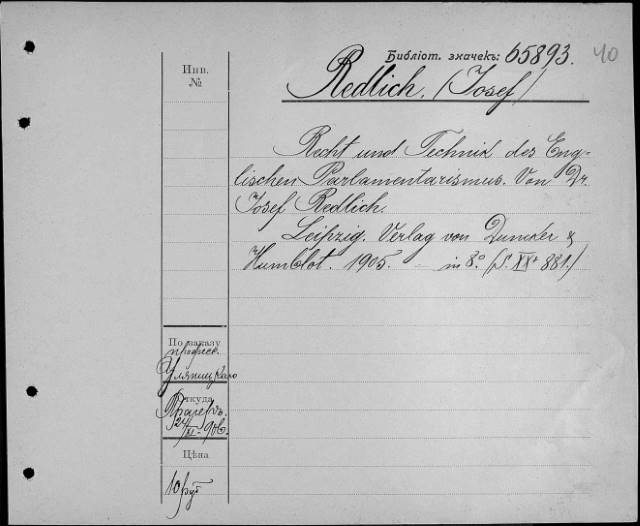 Библіот. значекъ: b5893. 40
Инв.
№
Redlich. (Josef)
Recht und Technik des Eng-
lischen Parlamentarismus. Von Dr.
Josef Redlich.
Leipzig. Verlag von Duncker &
Humblot. 1905. in 8.º (S. XX+881.)
По заказу
професс.
Уляницкаго
Откуда
24/XI-906.
Цѣна
10 руб